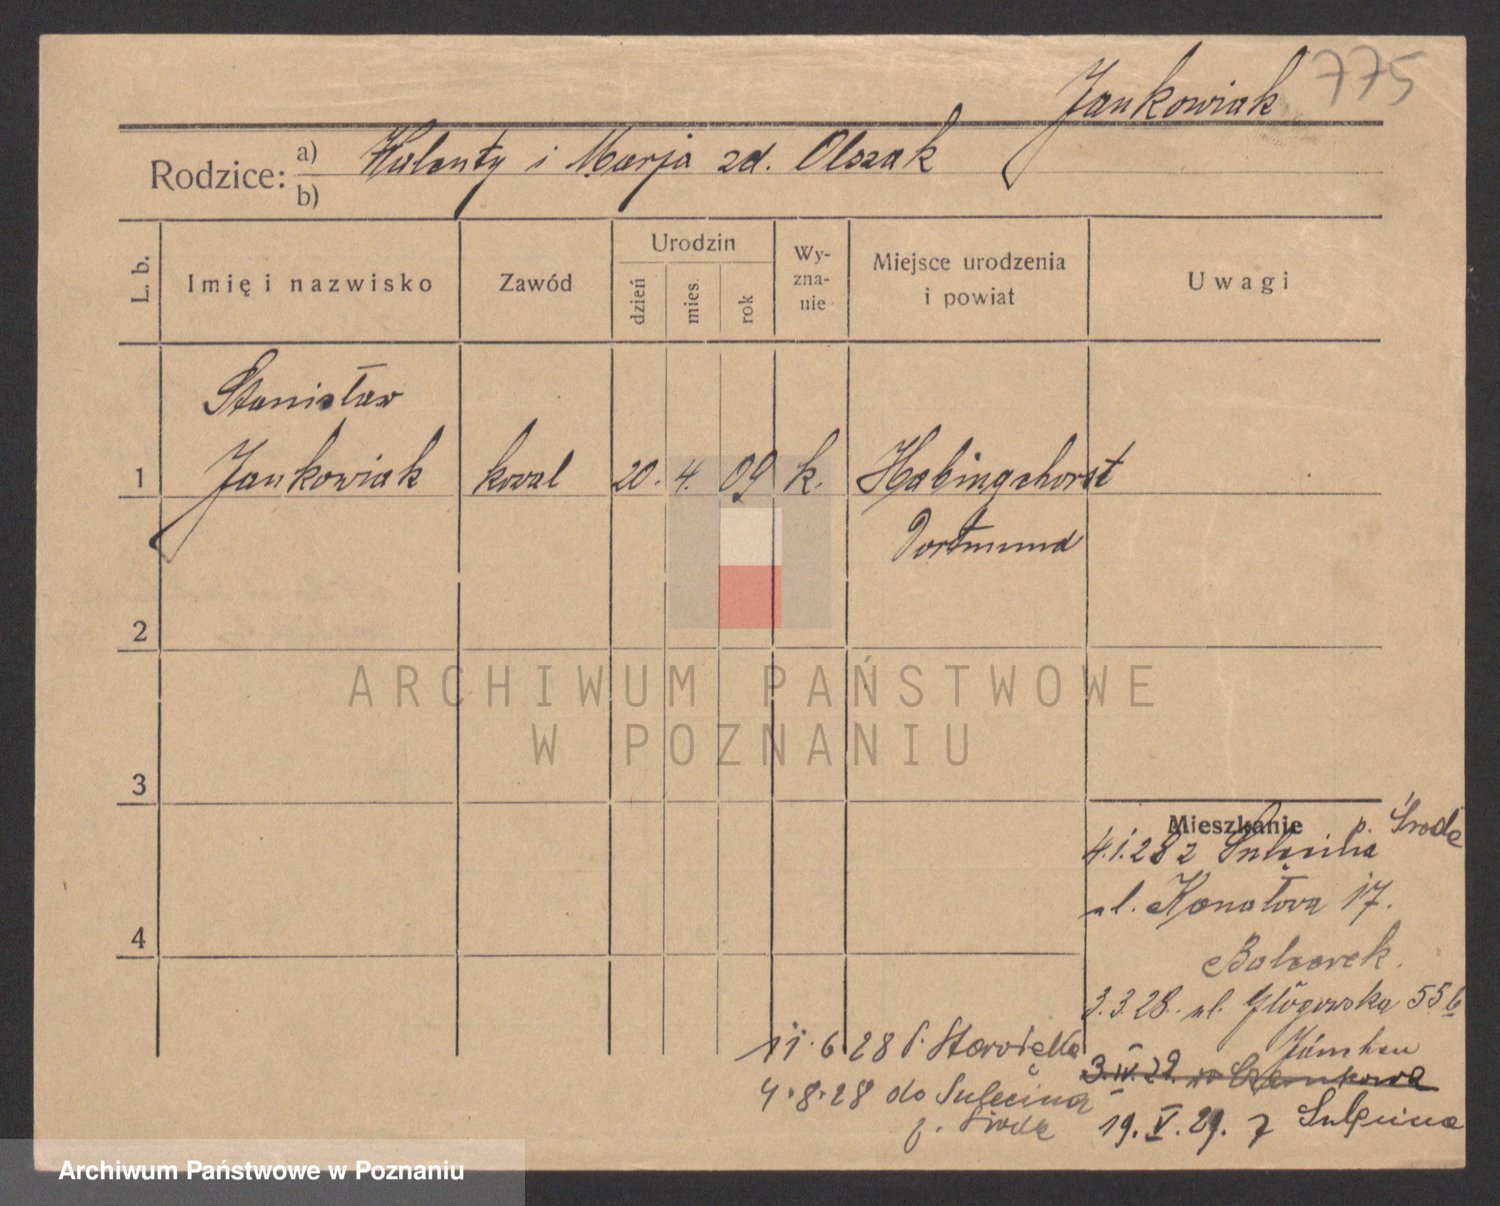 Jankowiak 775
Rodzice: a) Walenty i Marja zd. Olszak
b)
L. b.
Imię i nazwisko
Zawód
Urodzin
dzień
mies.
rok
Wy-
zna-
nie
Miejsce urodzenia
i powiat
Uwagi
Stanisław
1 Jankowiak kowal 20. 4. 09 k. Habinghorst
Dortmund
2
ARCHIWUM PAŃSTWOWE
W POZNANIU
3
Mieszkanie
p. Środa
4.1.28 z Sulęcina
ul. Kanałowa 17.
4
Balcerek.
3.3.28. ul. Głogowska 55b
11.6.28
4.8.28 do Sulęcina
p. Środa
3.IV.29.
19.V.29. z Sulęcina
Archiwum Państwowe w Poznaniu